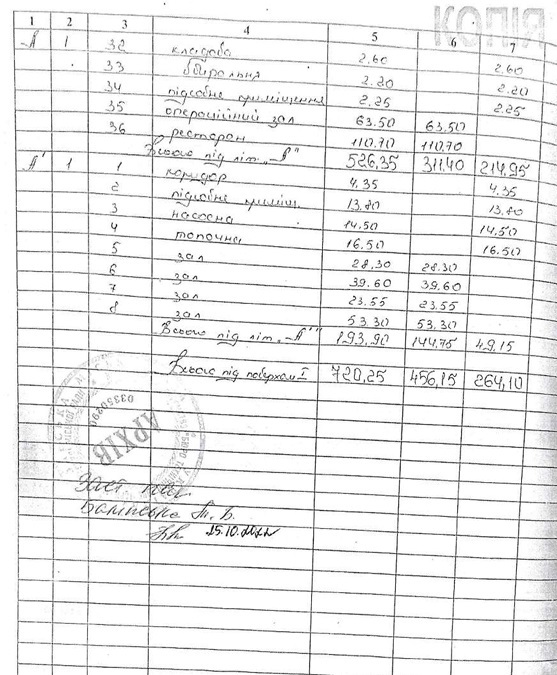 КОПІЯ
1 2 3 4 5 6 7
А 1 32 кладова 2.60 2.60
33 вбиральня 2.20 2.20
34 підсобне приміщення 2.25 2.25
35 операційний зал 63.50 63.50
36 ресторан 110.70 110.70
Всього під літ. „А" 526,35 311.40 214,95
А' 1 1 коридор 4.35 4.35
2 підсобне приміщ. 13.80 13.80
3 насосна 14.50 14.50
4 топочна 16.50 16.50
5 зал 28.30 28.30
6 зал 39.60 39.60
7 зал 23.55 23.55
8 зал 53.30 53.30
Всього під літ. „А'" 193,90 144.75 49.15
Всього під поверхом I 720,25 456,15 264,10
03350291
АРХІВ
15.10.2012